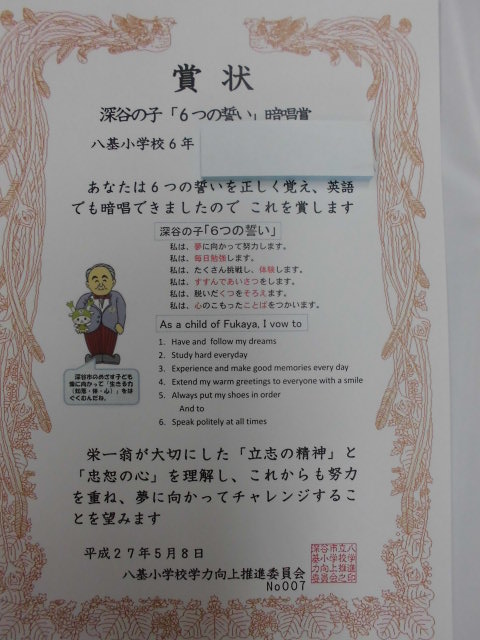 賞状
深谷の子「6つの誓い」暗唱賞
八基小学校6年
あなたは6つの誓いを正しく覚え、英語
でも暗唱できましたので これを賞します
深谷の子「6つの誓い」
私は、夢に向かって努力します。
私は、毎日勉強します。
私は、たくさん挑戦し、体験します。
私は、すすんであいさつをします。
私は、脱いだくつをそろえます。
私は、心のこもったことばをつかいます。
As a child of Fukaya, I vow to
1. Have and follow my dreams
2. Study hard everyday
3. Experience and make good memories every day
4. Extend my warm greetings to everyone with a smile
5. Always put my shoes in order
And to
6. Speak politely at all times
深谷市のめざす子ども
像に向かって「生きる力
(知恵・体・心)」をは
ぐくむんだね。
栄一翁が大切にした「立志の精神」と
「忠恕の心」を理解し、これからも努力
を重ね、夢に向かってチャレンジするこ
とを望みます
平成27年5月8日
八基小学校学力向上推進委員会
No007
深谷市立八
基小学校学
力向上推進
委員会之印